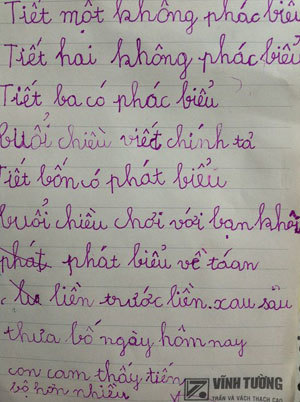 Tiết một không phác biể
Tiết hai không phác biể
Tiết ba có phác biểu
buổi chiều viết chính tả
Tiết bốn có phát biểu
buổi chiều chơi với bạn khôi
phát phát biểu về táan
liền trước liền xau sấu
thưa bố ngày hôm nay
con cam thấy tiến
bộ hơn nhiều
VĨNH TƯỜNG
TRẦN VÀ VÁCH THẠCH CAO